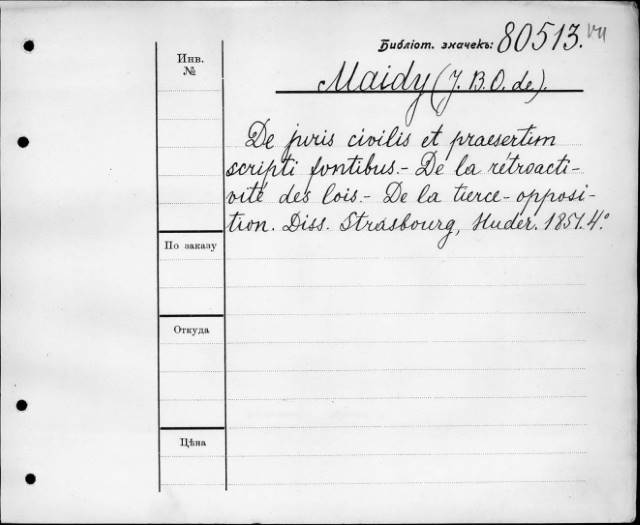 Библіот. значекъ: 80513. VII
Инв.
№
Maidy (J. B. O. de).
De juris civilis et praesertim
scripti fontibus. - De la rétroacti-
vité des lois. - De la tierce-opposi-
tion. Diss. Strasbourg, Huder. 1851. 4°
По заказу
Откуда
Цѣна